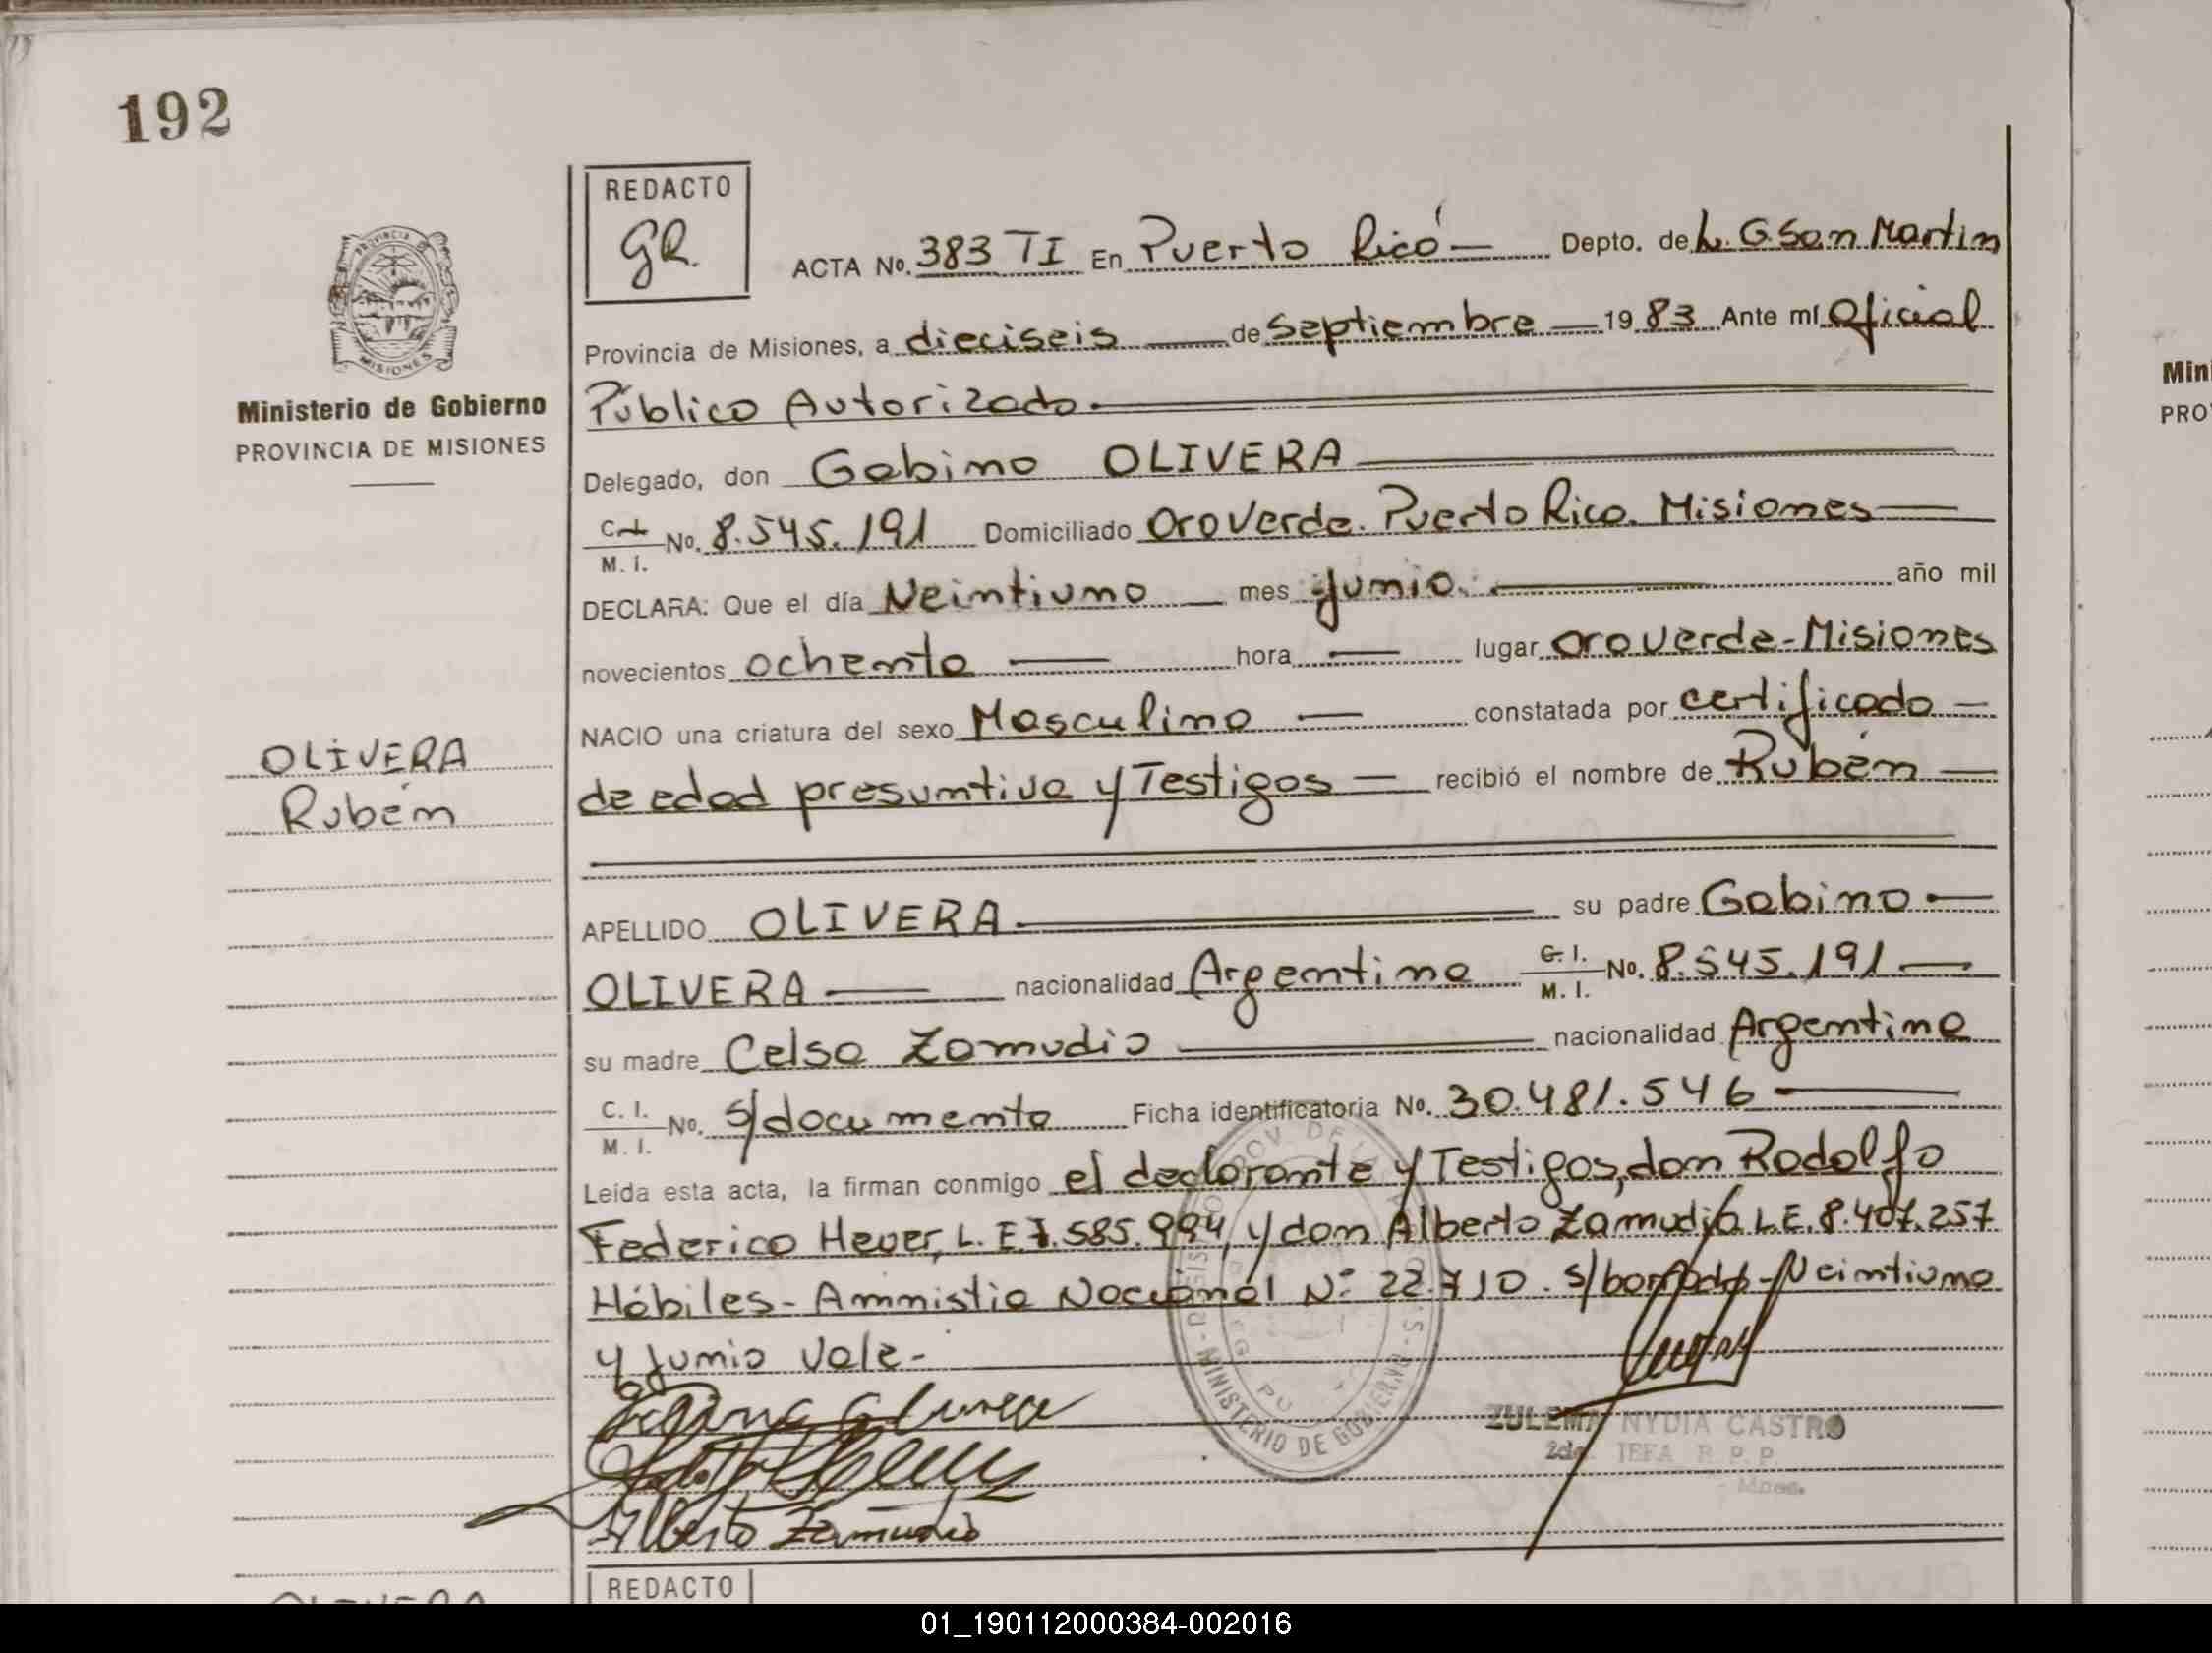 192
REDACTO
GR.
ACTA No. 383 TI En Puerto Rico Depto. de L. G. San Martin
Provincia de Misiones, a dieciseis de Septiembre 1983 Ante mí Oficial
Público Autorizado.
Ministerio de Gobierno
PROVINCIA DE MISIONES
Delegado, don Gabino OLIVERA
C. I. M. I. No. 8.545.191 Domiciliado Oro Verde. Puerto Rico. Misiones
DECLARA: Que el día Veintiuno mes Junio. año mil
novecientos ochenta hora lugar Oro Verde-Misiones
NACIO una criatura del sexo Masculino constatada por certificado
de edad presuntiva y Testigos recibió el nombre de Rubén
OLIVERA
Rubén
APELLIDO OLIVERA su padre Gabino
OLIVERA nacionalidad Argentina C. I. M. I. No. 8.545.191
su madre Celsa Zamudio nacionalidad Argentina
C. I. M. I. No. s/documento Ficha identificatoria No. 30.481.546
Leída esta acta, la firman conmigo el declarante y Testigos, don Rodolfo
Federico Heuer, L.E 7.585.994, y don Alberto Zamudio L.E. 8.407.257
Hábiles- Amnistia Nacional Nº 22.710. s/borrado-Veintiuno
y Junio Vale-
MINISTERIO DE GOBIERNO
ZULEMA NYDIA CASTRO
2da. JEFA R. P. P.
Alberto Zamudio
REDACTO
Mini
PRO
01_190112000384-002016